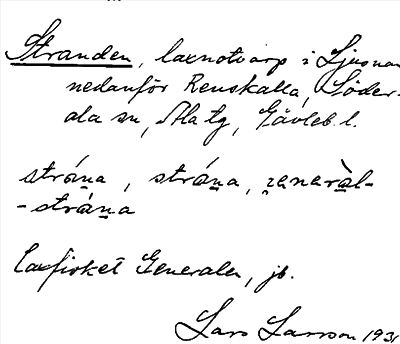 Stranden, laxnotvarp i Ljusnan
nedanför Renskalla, Söder-
ala sn, Ala tg, Gävleb. l.
strána, strána, ʒenaràl-
-strána
laxfisket Generalen, jb.
Lars Larsson 1931